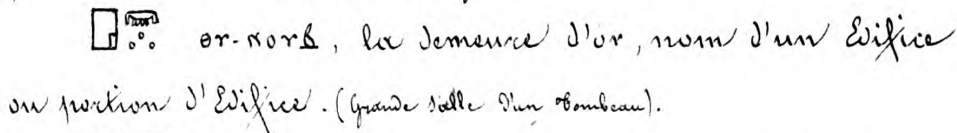 ⲛⲟⲩⲃ, la demeure d'or, nom d'un Edifice
ou portion d'Edifice. (Grande salle d'un tombeau).